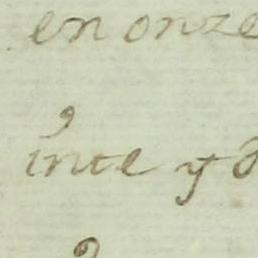 en onze
inte y